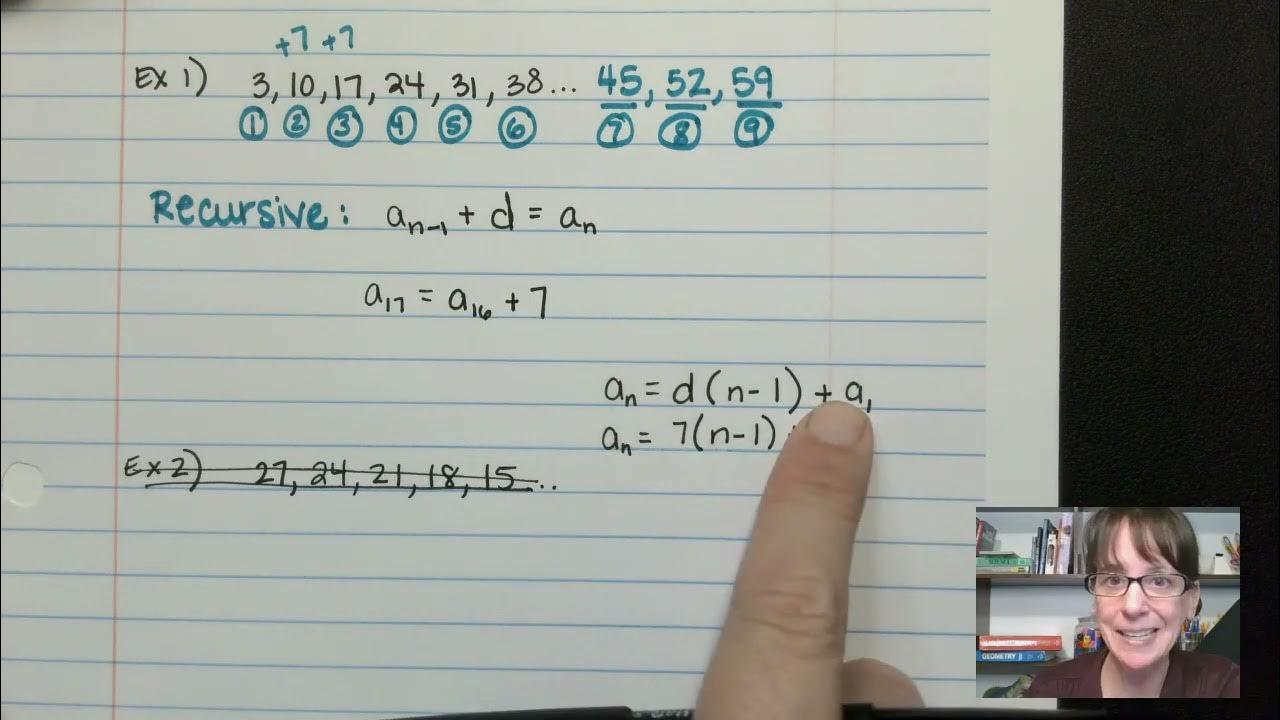 +7 +7
Ex 1) 3, 10, 17, 24, 31, 38... 45, 52, 59
① ② ③ ④ ⑤ ⑥ ⑦ ⑧ ⑨
Recursive: aₙ₋₁ + d = aₙ
a₁₇ = a₁₆ + 7
aₙ = d(n-1) + a₁
aₙ = 7(n-1)
Ex 2) 27, 24, 21, 18, 15...
GEOMETRY